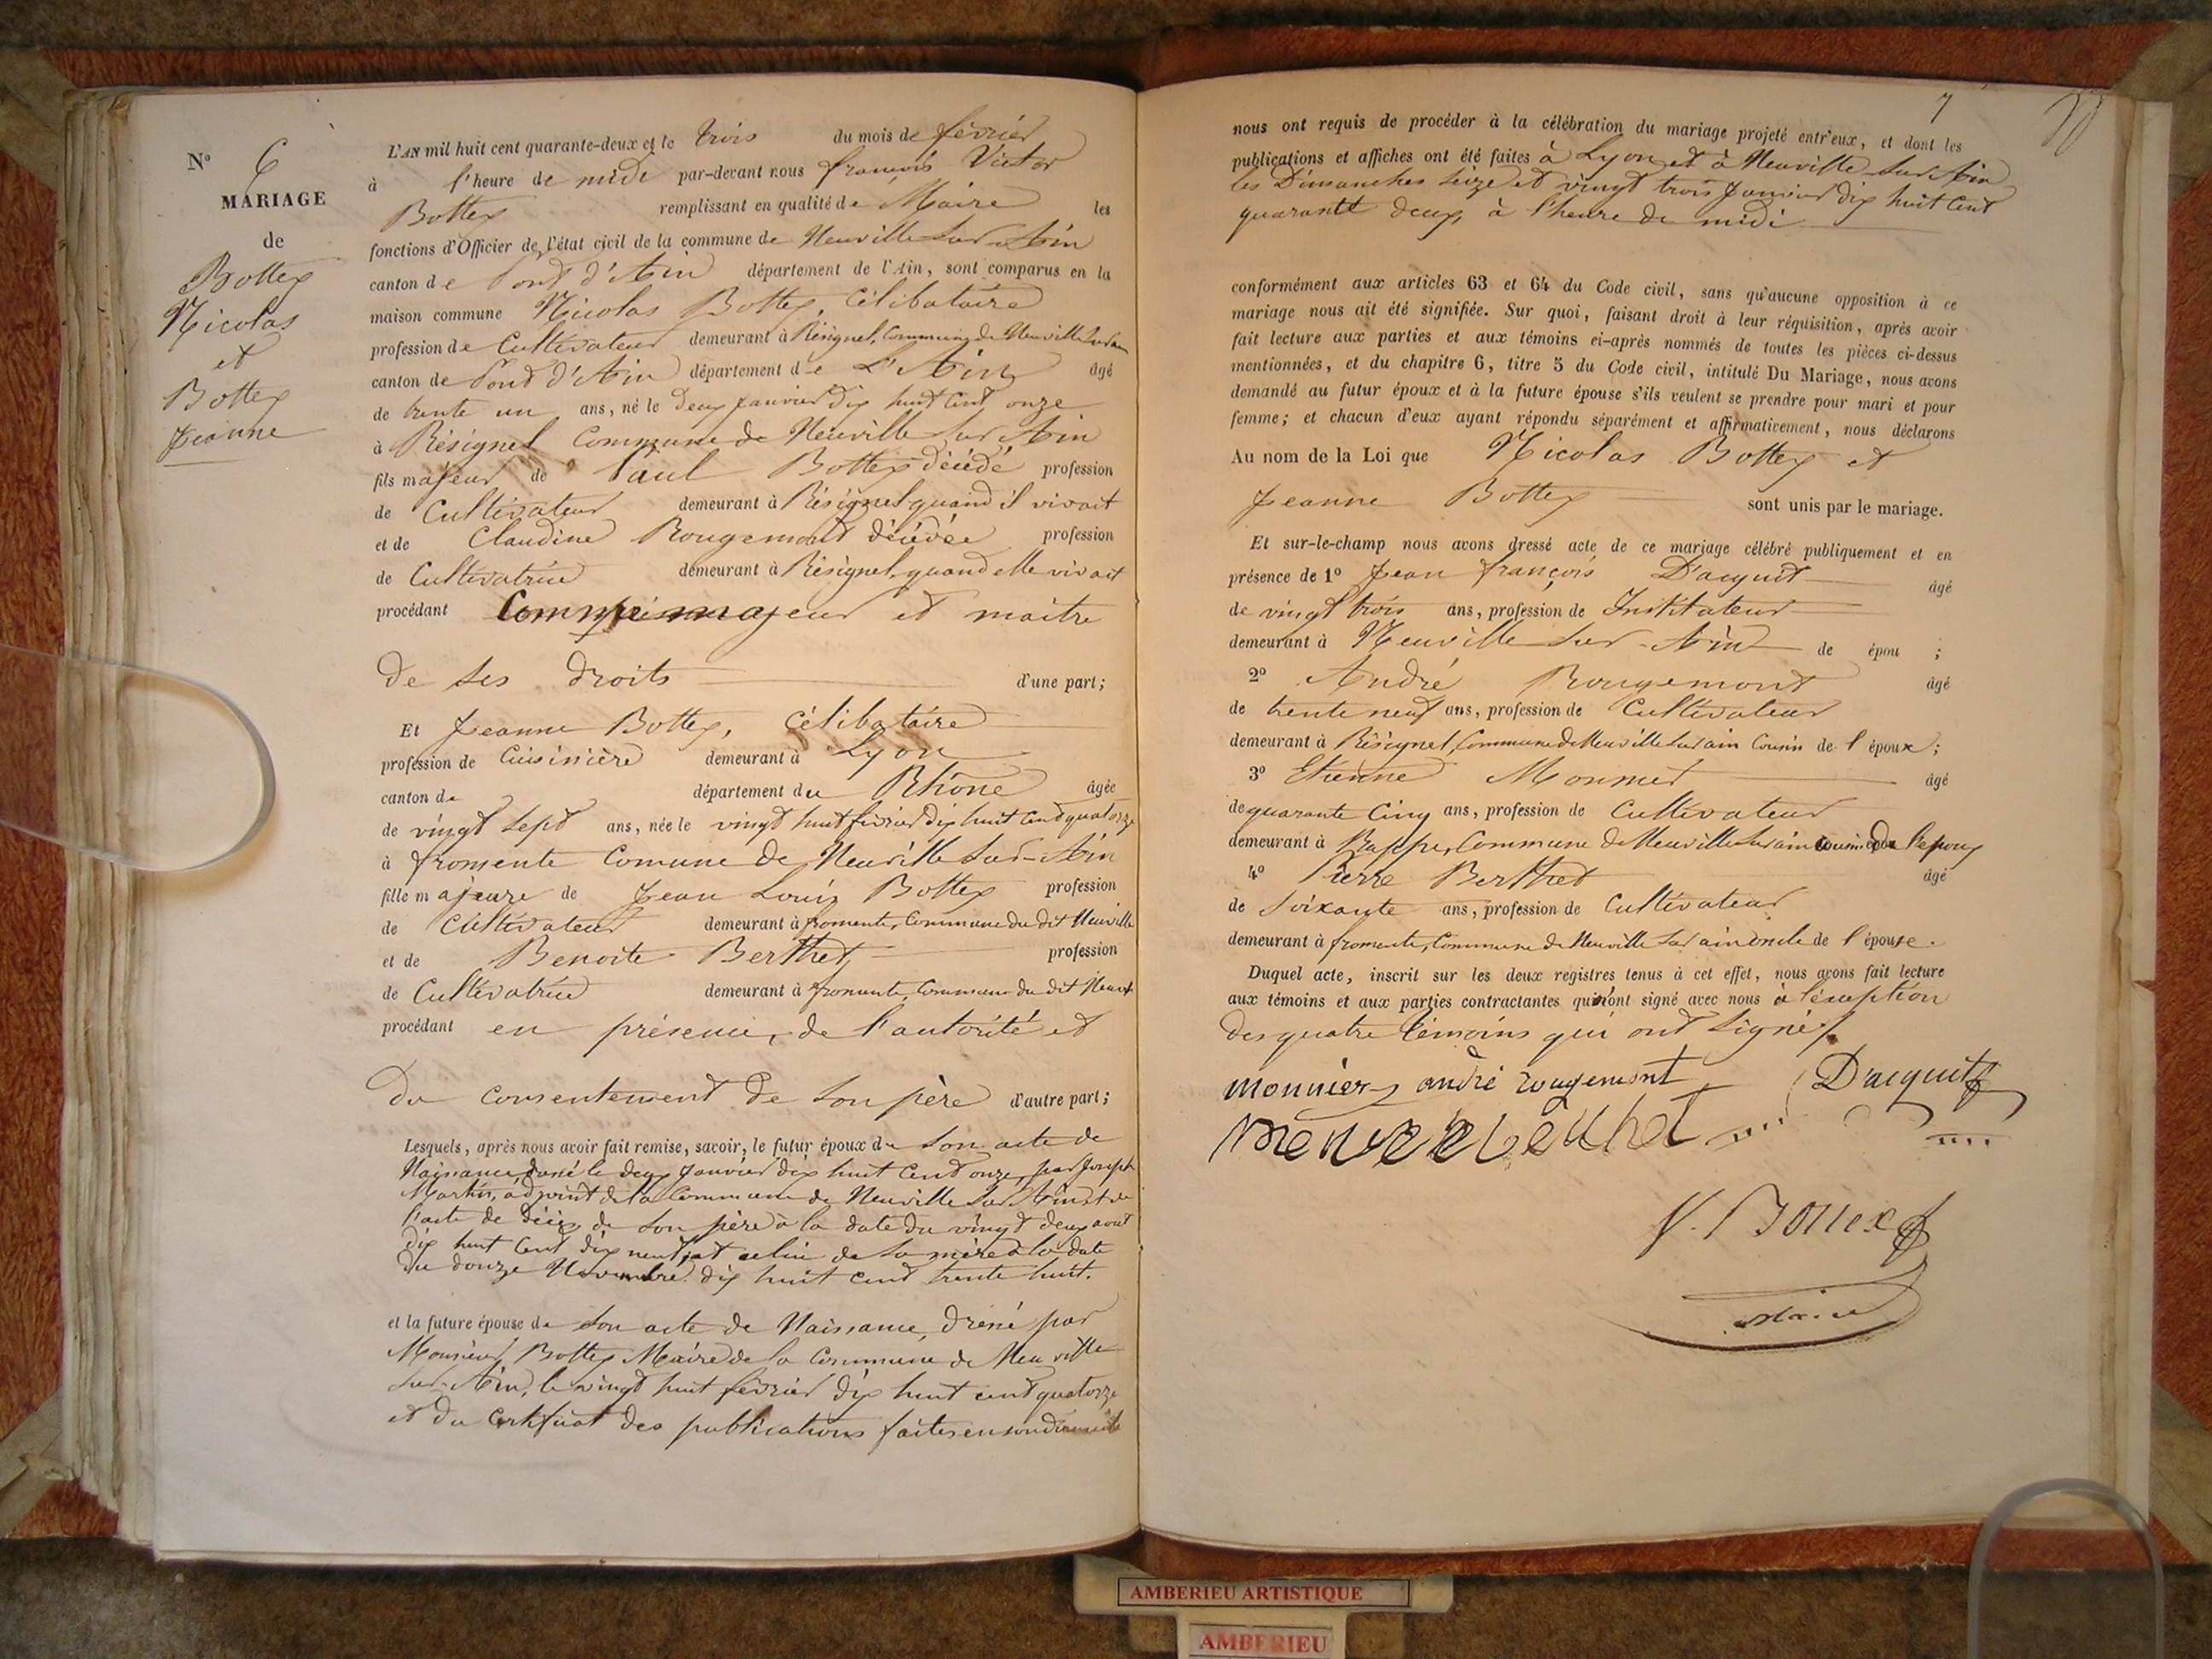 N° 6
MARIAGE
de
Bottex
Nicolas
et
Bottex
Jeanne
L'AN mil huit cent quarante-deux et le trois du mois de février
à l'heure de midi par-devant nous françois Victor
Bottex remplissant en qualité de Maire les
fonctions d'Officier de l'état civil de la commune de Neuville Sur Ain
canton de Pont d'Ain département de l'Ain, sont comparus en la
maison commune Nicolas Bottex, Célibataire
profession de Cultivateur demeurant à Résignel, Commune de Neuville Sur ain
canton de Pont d'Ain département de L'Ain âgé
de trente un ans, né le deux janvier dix huit Cent onze
à Résignel Commune de Neuville Sur Ain
fils majeur de Paul Bottex décédé profession
de Cultivateur demeurant à Résignel quand il vivait
et de Claudine Rougemont décédée profession
de Cultivatrice demeurant à Résignel, quand elle vivait
procédant Comme majeur et maitre
de ses droits d'une part;
Et Jeanne Bottex, Célibataire
profession de Cuisinière demeurant à Lyon
canton de département du Rhône âgée
de vingt sept ans, née le vingt huit février dix huit Cent quatorze
à fromente Comune de Neuville Sur-Ain
fille majeure de Jean Louis Bottex profession
de Cultivateur demeurant à fromente, Commune du dit Neuville
et de Benoite Berthet, profession
de Cultivatrice demeurant à fromente, Commune du dit Neuv
procédant en présence, de l'autorité et
du consentement de son père d'autre part;
Lesquels, après nous avoir fait remise, savoir, le futur époux de Son acte de
Naissance, le deux Janvier dix huit Cent onze, par Joseph
Martin, adjoint de la Commune de Neuville Sur Ain et de
l'acte de décès de son père à la date du vingt deux aout
dix huit Cent dix neuf, et celui de sa mère à la date
du douze Novembre dix huit cent trente huit.
et la future épouse de son acte de Naissance, dréné par
Monsieur Bottex Maire de la Commune de Neuville
sur-Ain, le vingt huit février dix huit cent quatorze
et du Certificat des publications faites en son domicile
7
nous ont requis de procéder à la célébration du mariage projeté entr'eux, et dont les
publications et affiches ont été faites à Lyon et à Neuville Sur Ain
les Dimanches Seize et vingt trois Janvier dix huit Cent
quarante deux, à l'heure de midi
conformément aux articles 63 et 64 du Code civil, sans qu'aucune opposition à ce
mariage nous ait été signifiée. Sur quoi, faisant droit à leur réquisition, après avoir
fait lecture aux parties et aux témoins ci-après nommés de toutes les pièces ci-dessus
mentionnées, et du chapitre 6, titre 5 du Code civil, intitulé Du Mariage, nous avons
demandé au futur époux et à la future épouse s'ils veulent se prendre pour mari et pour
femme; et chacun d'eux ayant répondu séparément et affirmativement, nous déclarons
Au nom de la Loi que Nicolas Bottex et
Jeanne Bottex sont unis par le mariage.
Et sur-le-champ nous avons dressé acte de ce mariage célébré publiquement et en
présence de 1° Jean françois D'acquit âgé
de vingt trois ans, profession de Instituteur
demeurant à Neuville Sur-Ain de épou ;
2° André Rougemont âgé
de trente neuf ans, profession de Cultivateur
demeurant à Résignel, Commune de Neuville Sur ain Cousin de l'époux;
3° Etienne Monnier âgé
de quarante Cinq ans, profession de Cultivateur
demeurant à Rappe, Commune de Neuville Sur ain cousin de l'epoux
4° Pierre Berthet âgé
de Soixante ans, profession de Cultivateur
demeurant à fromente, Commune de Neuville Sur ain oncle de l'épouse.
Duquel acte, inscrit sur les deux registres tenus à cet effet, nous avons fait lecture
aux témoins et aux parties contractantes qui n'ont signé avec nous à l'éxeption
des quatre témoins qui ont signé.
monnier andré rougemont D'acquit
V. Bottex
Maire
AMBERIEU ARTISTIQUE
AMBERIEU